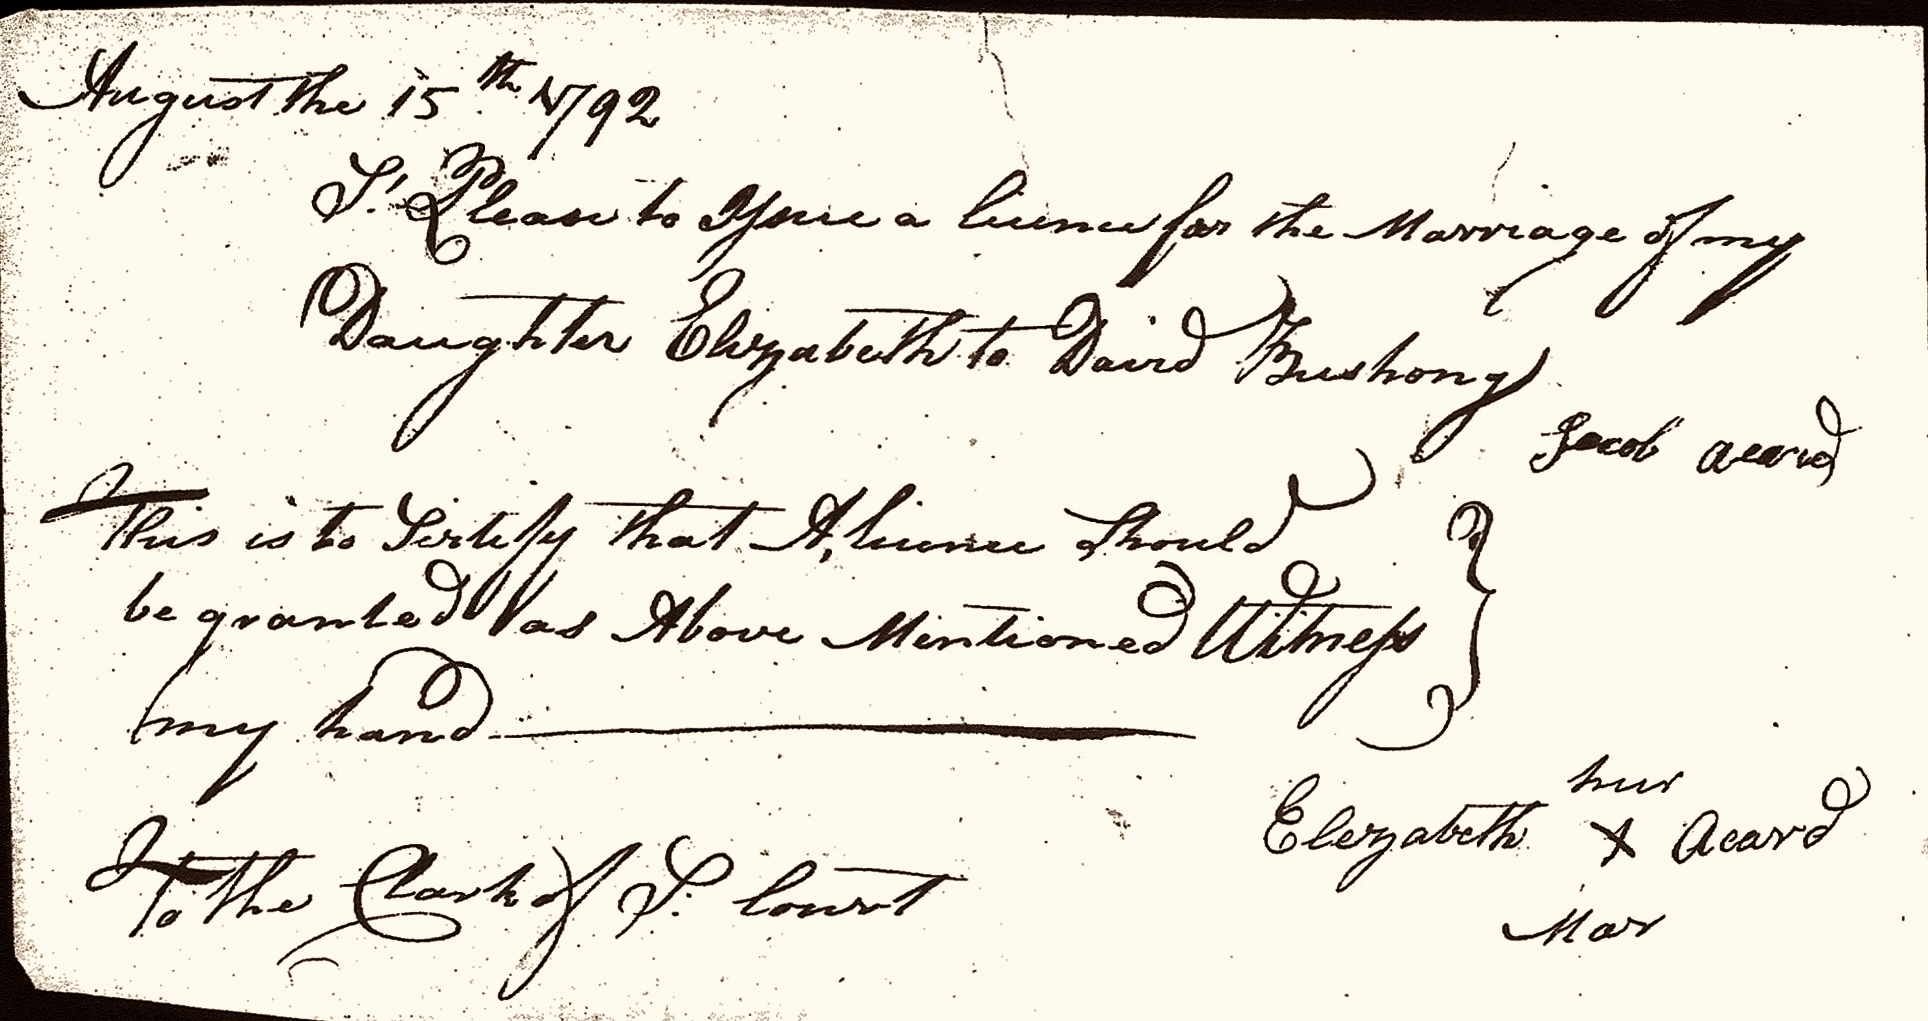 August the 15th 1792
Sr. Please to Isue a licence for the Marriage of my
Daughter Elizabeth to David Bushong
Jacob acard
This is to Sertify that A licence Should
be granted as Above Mentioned Witness
my hand
hur
Elezabeth X Acard
Mar
To the Clark of S. Court